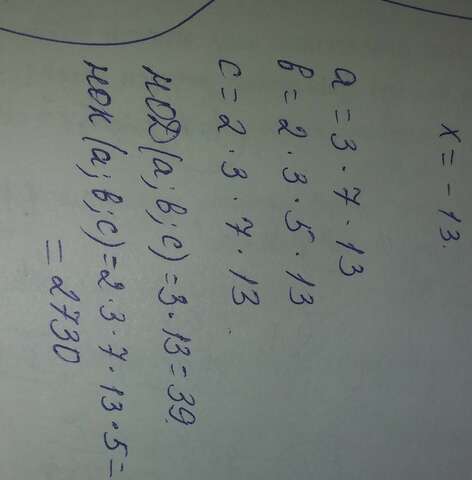 x = - 13.
a = 3 · 7 · 13
b = 2 · 3 · 5 · 13
c = 2 · 3 · 7 · 13.
НОД (a; b; c) = 3 · 13 = 39.
НОК (a; b; c) = 2 · 3 · 7 · 13 · 5 =
= 2730